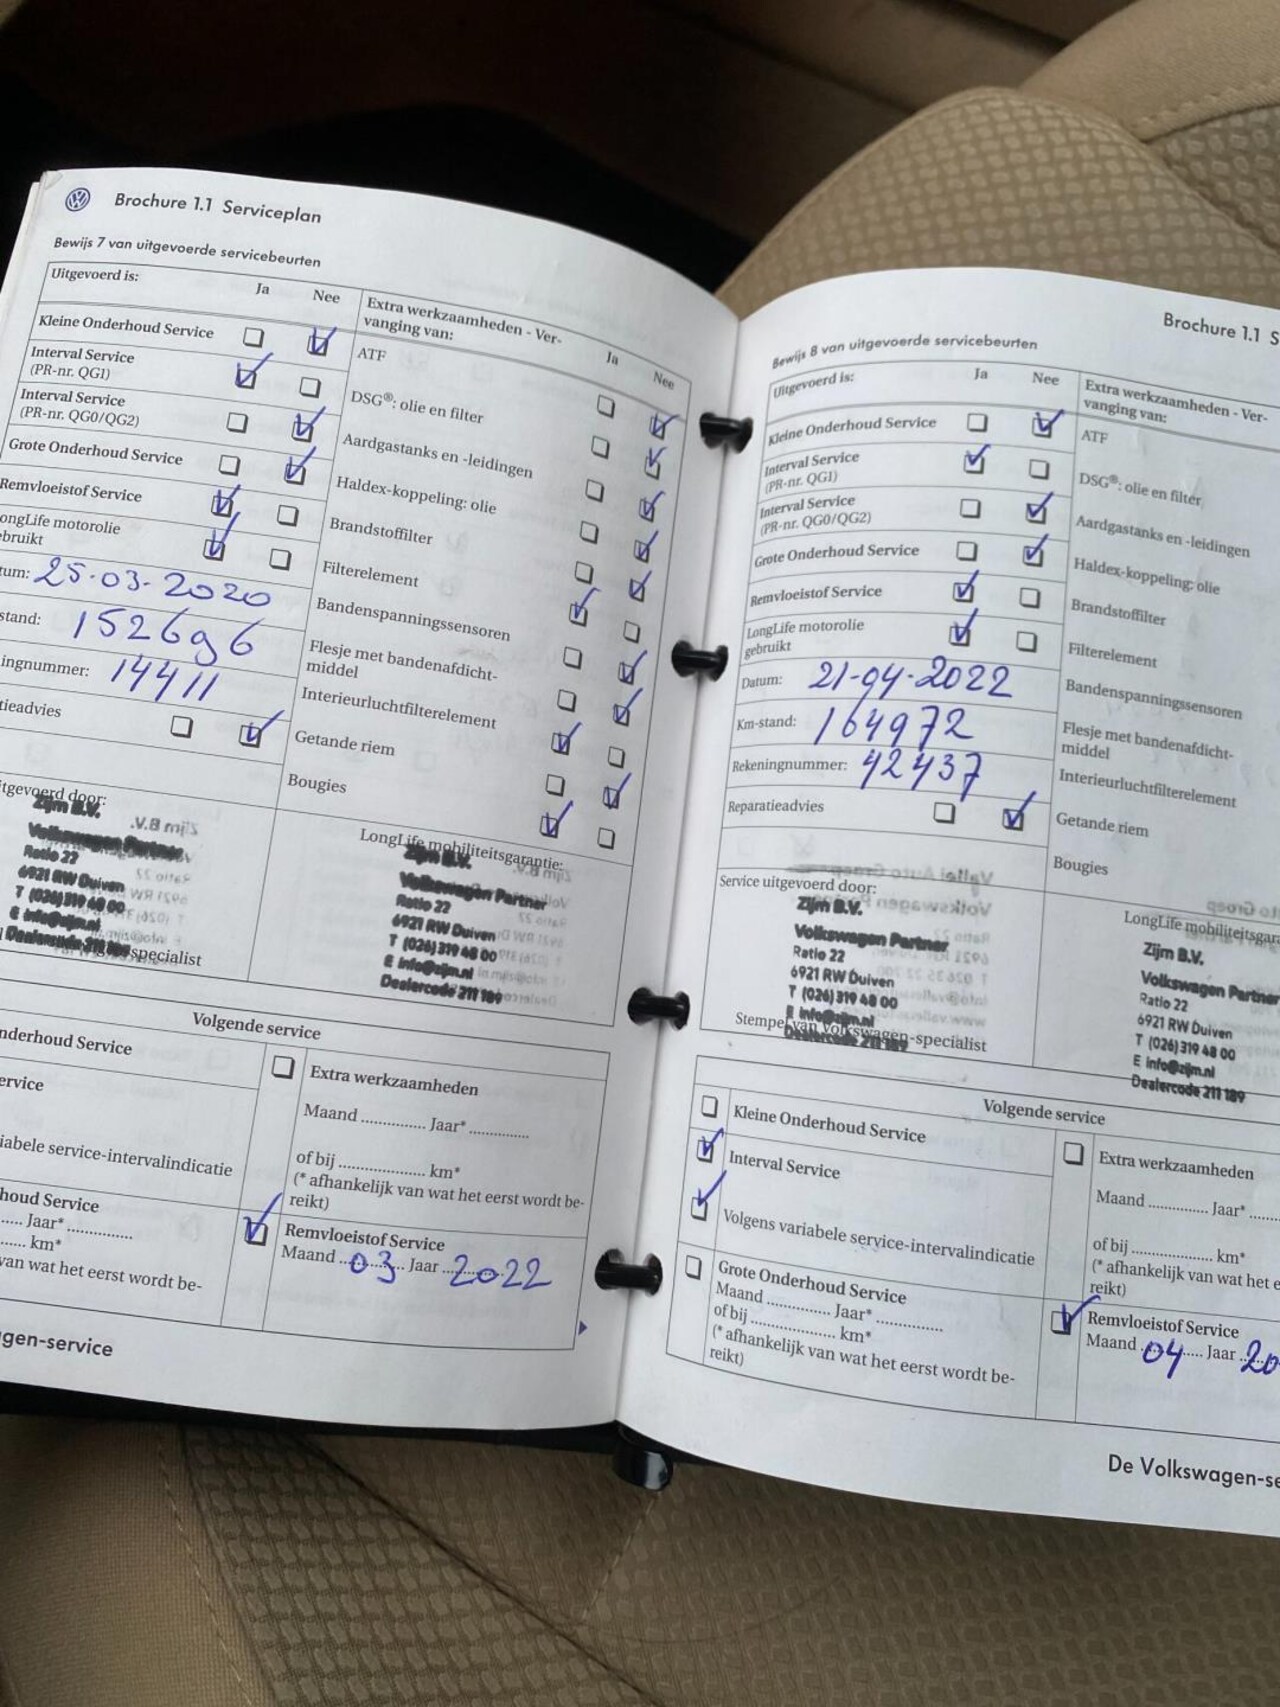 Brochure 1.1 Serviceplan
Bewijs 7 van uitgevoerde servicebeurten
Uitgevoerd is:
Ja
Nee
Extra werkzaamheden - Ver-
vanging van:
Ja
Nee
Kleine Onderhoud Service
Interval Service
(PR-nr. QG1)
Interval Service
(PR-nr. QG0/QG2)
Grote Onderhoud Service
Remvloeistof Service
ongLife motorolie
ebruikt
tum: 25-03-2020
stand: 152696
ingnummer: 14411
tieadvies
ATF
DSG®: olie en filter
Aardgastanks en -leidingen
Haldex-koppeling: olie
Brandstoffilter
Filterelement
Bandenspanningssensoren
Flesje met bandenafdicht-
middel
Interieurluchtfilterelement
Getande riem
Bougies
itgevoerd door:
Zijm B.V.
Volkswagen Partner
Ratio 22
6921 RW Duiven
T (026) 319 48 00
E info@zijm.nl
Dealercode 211 189
specialist
LongLife mobiliteitsgarantie:
Zijm B.V.
Volkswagen Partner
Ratio 22
6921 RW Duiven
T (026) 319 48 00
E info@zijm.nl
Dealercode 211 189
Volgende service
nderhoud Service
ervice
iabele service-intervalindicatie
houd Service
..... Jaar* ...............
...... km*
van wat het eerst wordt be-
Extra werkzaamheden
Maand ............... Jaar* ..............
of bij .................... km*
(* afhankelijk van wat het eerst wordt be-
reikt)
Remvloeistof Service
Maand 03 Jaar 2022
gen-service
Brochure 1.1 S
Bewijs 8 van uitgevoerde servicebeurten
Uitgevoerd is:
Ja
Nee
Extra werkzaamheden - Ver-
vanging van:
Kleine Onderhoud Service
Interval Service
(PR-nr. QG1)
Interval Service
(PR-nr. QG0/QG2)
Grote Onderhoud Service
Remvloeistof Service
LongLife motorolie
gebruikt
Datum: 21-04-2022
Km-stand: 164972
Rekeningnummer: 42437
Reparatieadvies
ATF
DSG®: olie en filter
Aardgastanks en -leidingen
Haldex-koppeling: olie
Brandstoffilter
Filterelement
Bandenspanningssensoren
Flesje met bandenafdicht-
middel
Interieurluchtfilterelement
Getande riem
Bougies
Service uitgevoerd door:
Zijm B.V.
Volkswagen Partner
Ratio 22
6921 RW Duiven
T (026) 319 48 00
E info@zijm.nl
Dealercode 211 189
Stempel van Volkswagen-specialist
LongLife mobiliteitsgara
Zijm B.V.
Volkswagen Partner
Ratio 22
6921 RW Duiven
T (026) 319 48 00
E info@zijm.nl
Dealercode 211 189
Volgende service
Kleine Onderhoud Service
Interval Service
Volgens variabele service-intervalindicatie
Grote Onderhoud Service
Maand ............... Jaar* ...............
of bij .................... km*
(* afhankelijk van wat het eerst wordt be-
reikt)
Extra werkzaamheden
Maand .............. Jaar* ......
of bij .................... km*
(* afhankelijk van wat het e
reikt)
Remvloeistof Service
Maand 04 Jaar 20
De Volkswagen-se